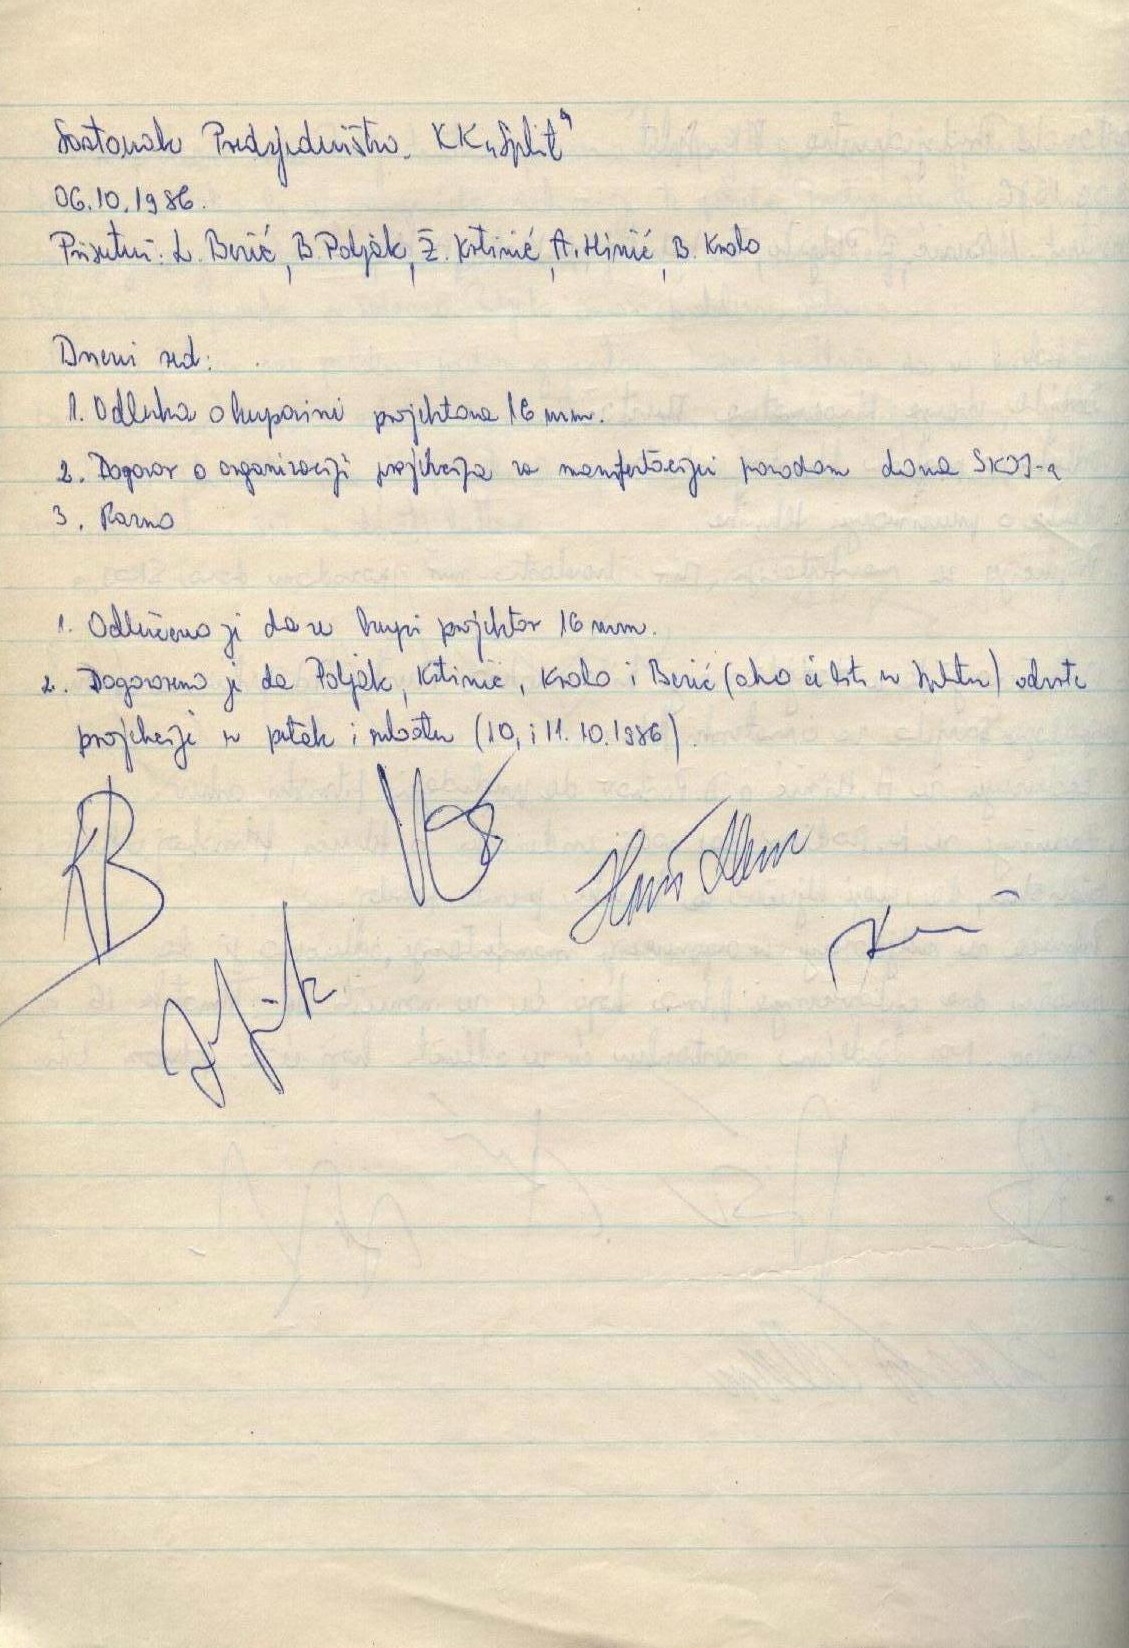 Sastanak Predsjedništva KK "Split"
06.10.1986.
Prisutni: L. Berić, B. Poljak, Ž. Krtinić, A. Hinić, B. Kralo
Dnevni red:
1. Odluka o kupovini projektora 16 mm.
2. Dogovor o organizaciji projekcija za manifestaciju povodom dana SKOJ-a
3. Razno
1. Odlučeno je da se kupi projektor 16 mm.
2. Dogovoreno je da Poljak, Krtinić, Kralo i Berić (ako će biti u Splitu) održe
projekcije u petak i subotu (10. i 11.10.1986).